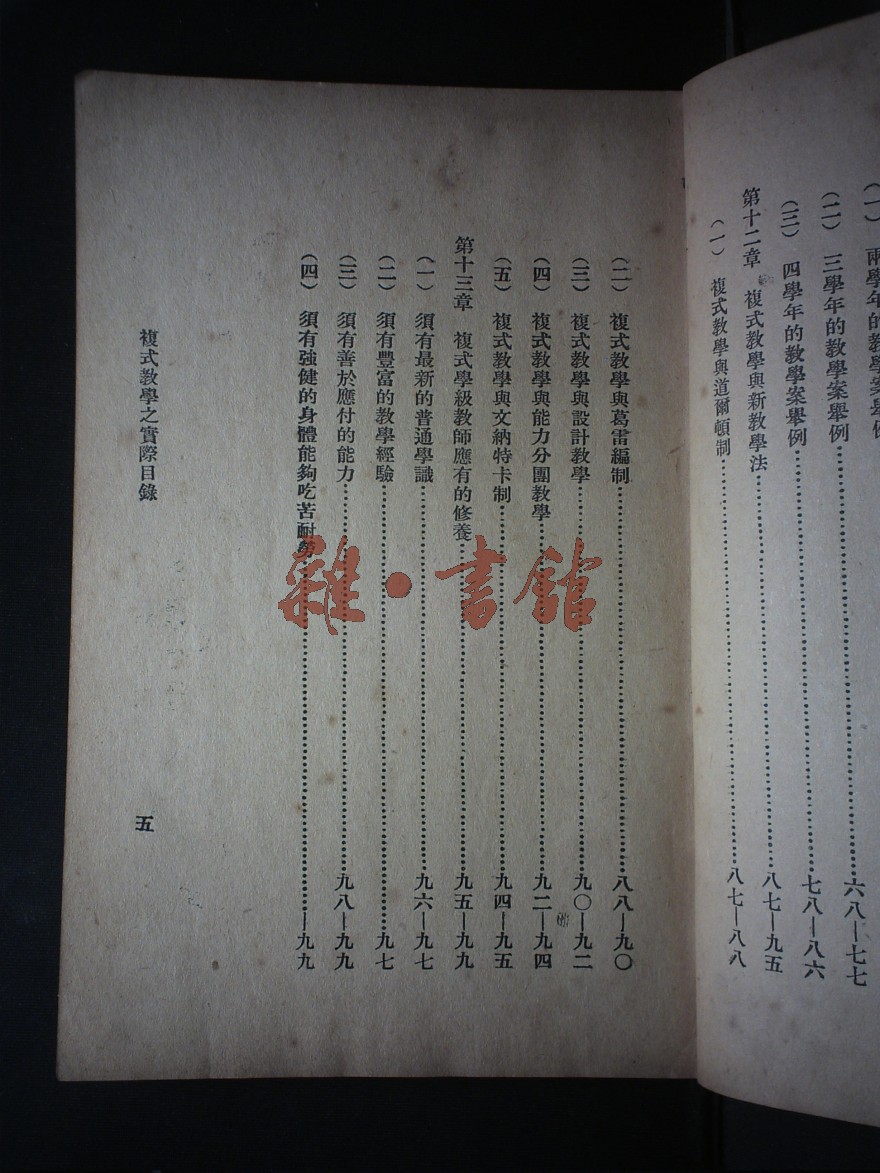 （一） 兩學年的教學案舉例
（二） 三學年的教學案舉例……六八—七七
（三） 四學年的教學案舉例……七八—八六
第十二章 複式教學與新教學法……八七—九五
（一） 複式教學與道爾頓制……八七—八八
（二） 複式教學與葛雷編制……八八—九〇
（三） 複式教學與設計教學……九〇—九二
（四） 複式教學與能力分團教學……九二—九四
（五） 複式教學與文納特卡制……九四—九五
第十三章 複式學級教師應有的修養……九五—九九
（一） 須有最新的普通學識……九六—九七
（二） 須有豐富的教學經驗……九七
（三） 須有善於應付的能力……九八—九九
（四） 須有強健的身體能夠吃苦耐勞……—九九
複式教學之實際目錄
五
雜·書館